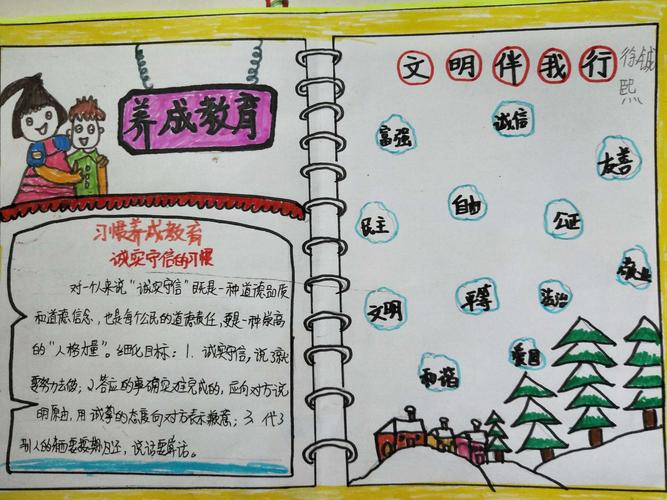 养成教育
习惯养成教育
诚实守信的习惯
对一个人来说“诚实守信”既是一种道德品质
和道德信念，也是每个公民的道德责任，更是一种崇高
的“人格力量”。细化目标：1、诚实守信，说了就
要努力去做；2、答应的事确实难完成的，应向对方说
明原由，用诚挚的态度向对方表示歉意；3、
别人的
要按期归还，说话要算话。
文明伴我行
徐铖熙
富强
诚信
友善
民主
自由
公正
敬业
文明
平等
法治
和谐
爱国